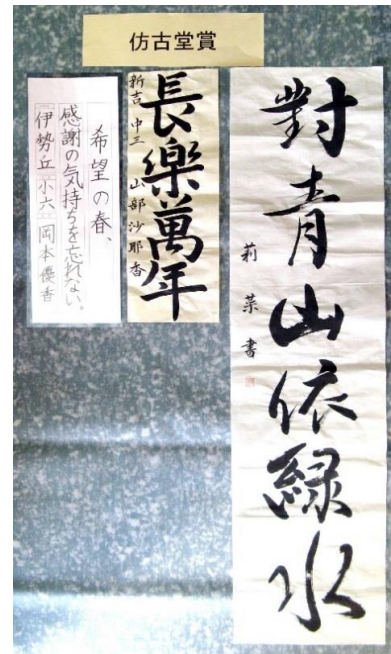 仿古堂賞
對青山依緑水
莉菜書
長樂萬年
新吉 中三 山部沙耶香
希望の春、
感謝の気持ちを忘れない。
伊勢丘 小六 岡本優香